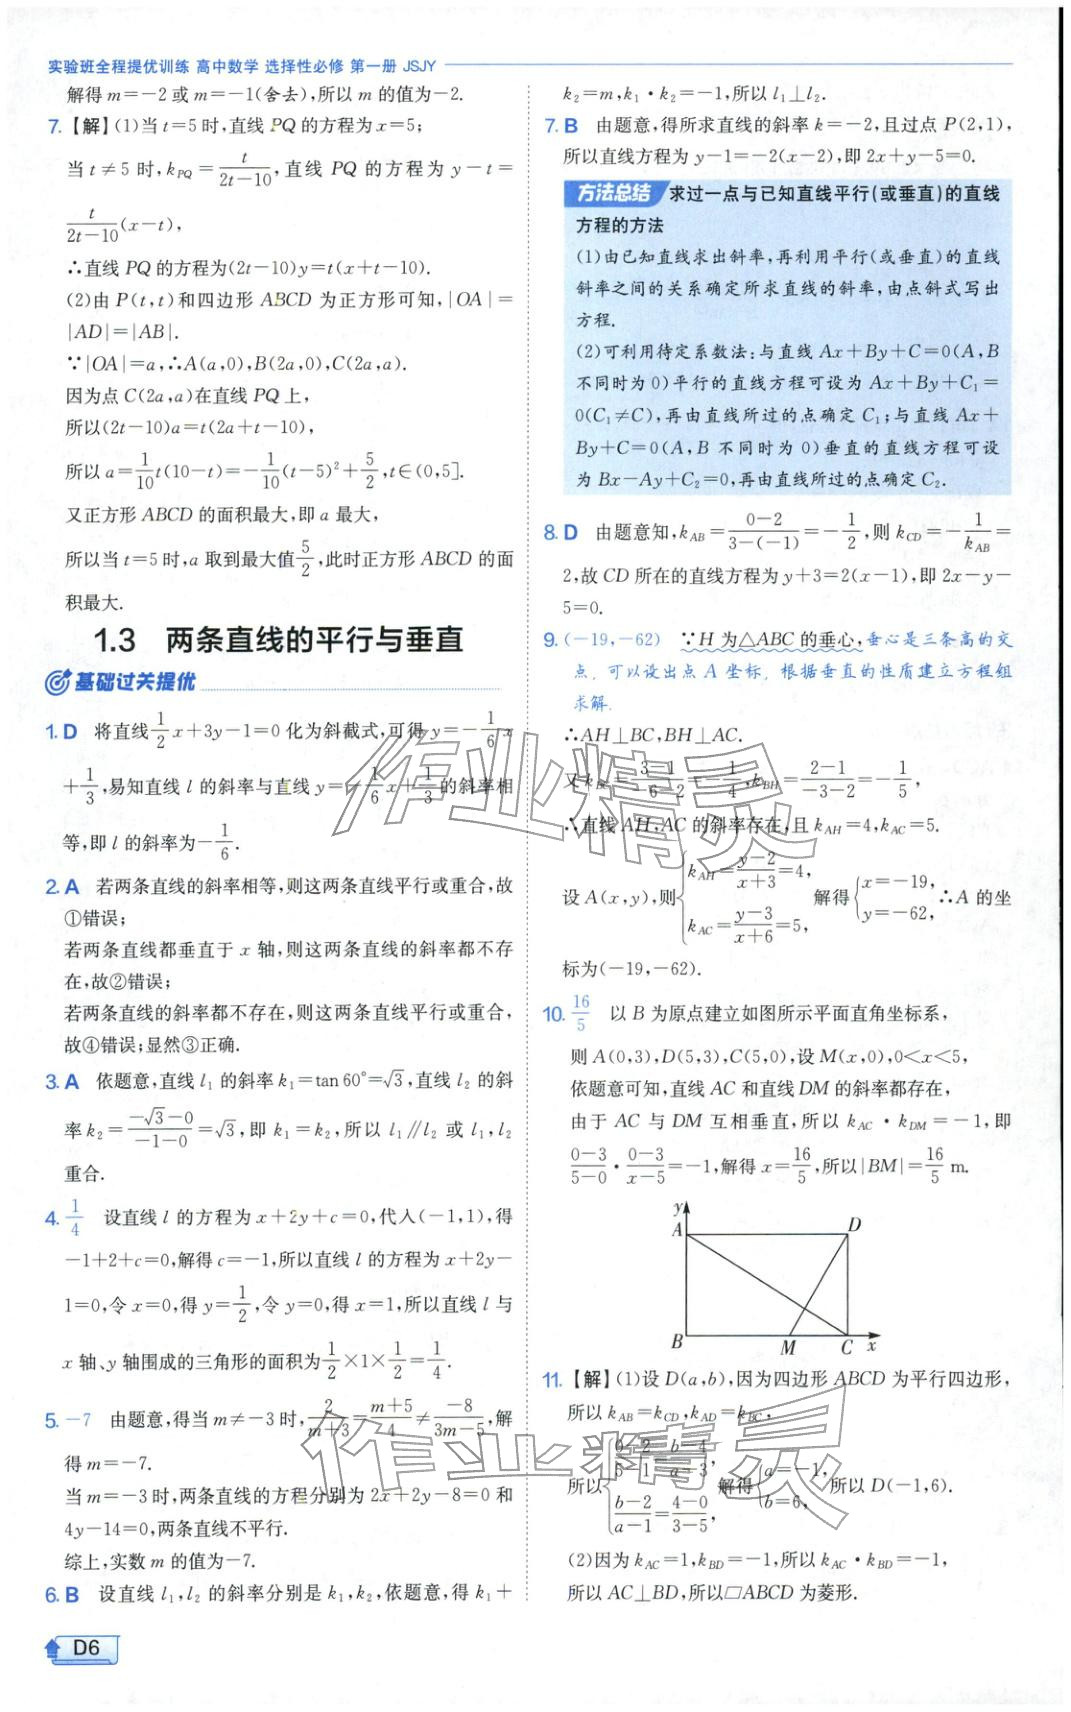 实验班全程提优训练 高中数学 选择性必修 第一册 JSJY
解得m=-2或m=-1(舍去),所以m的值为-2.
7.【解】(1)当t=5时,直线PQ的方程为x=5;
当t≠5时,k_PQ=t/(2t-10),直线PQ的方程为y-t=
t/(2t-10)(x-t),
∴直线PQ的方程为(2t-10)y=t(x+t-10).
(2)由P(t,t)和四边形ABCD为正方形可知,|OA|=
|AD|=|AB|.
∵|OA|=a,∴A(a,0),B(2a,0),C(2a,a).
因为点C(2a,a)在直线PQ上,
所以(2t-10)a=t(2a+t-10),
所以a=1/10 t(10-t)=-1/10(t-5)²+5/2,t∈(0,5].
又正方形ABCD的面积最大,即a最大,
所以当t=5时,a取到最大值5/2,此时正方形ABCD的面
积最大.
1.3 两条直线的平行与垂直
基础过关提优
1.D 将直线1/2 x+3y-1=0化为斜截式,可得y=-1/6 x
+1/3,易知直线l的斜率与直线y=-1/6 x+1/3的斜率相
等,即l的斜率为-1/6.
2.A 若两条直线的斜率相等,则这两条直线平行或重合,故
①错误;
若两条直线都垂直于x轴,则这两条直线的斜率都不存
在,故②错误;
若两条直线的斜率都不存在,则这两条直线平行或重合,
故④错误;显然③正确.
3.A 依题意,直线l₁的斜率k₁=tan 60°=√3,直线l₂的斜
率k₂=(-√3-0)/(-1-0)=√3,即k₁=k₂,所以l₁∥l₂或l₁,l₂
重合.
4. 1/4 设直线l的方程为x+2y+c=0,代入(-1,1),得
-1+2+c=0,解得c=-1,所以直线l的方程为x+2y-
1=0,令x=0,得y=1/2,令y=0,得x=1,所以直线l与
x轴、y轴围成的三角形的面积为1/2×1×1/2=1/4.
5.-7 由题意,得当m≠-3时,2/(m+3)=(m+5)/4≠-8/(3m-5),解
得m=-7.
当m=-3时,两条直线的方程分别为2x+2y-8=0和
4y-14=0,两条直线不平行.
综上,实数m的值为-7.
6.B 设直线l₁,l₂的斜率分别是k₁,k₂,依题意,得k₁+
D6
k₂=m,k₁·k₂=-1,所以l₁⊥l₂.
7.B 由题意,得所求直线的斜率k=-2,且过点P(2,1),
所以直线方程为y-1=-2(x-2),即2x+y-5=0.
方法总结 求过一点与已知直线平行(或垂直)的直线
方程的方法
(1)由已知直线求出斜率,再利用平行(或垂直)的直线
斜率之间的关系确定所求直线的斜率,由点斜式写出
方程.
(2)可利用待定系数法:与直线Ax+By+C=0(A,B
不同时为0)平行的直线方程可设为Ax+By+C₁=
0(C₁≠C),再由直线所过的点确定C₁;与直线Ax+
By+C=0(A,B不同时为0)垂直的直线方程可设
为Bx-Ay+C₂=0,再由直线所过的点确定C₂.
8.D 由题意知,k_AB=(0-2)/(3-(-1))=-1/2,则k_CD=-1/k_AB=
2,故CD所在的直线方程为y+3=2(x-1),即2x-y-
5=0.
9.(-19,-62) ∵H为△ABC的垂心,垂心是三条高的交
点,可以设出点A坐标,根据垂直的性质建立方程组
求解.
∴AH⊥BC,BH⊥AC.
又k_BC=(3-1)/(-6-2)=-1/4,k_BH=(2-1)/(-3-2)=-1/5,
∴直线AH,AC的斜率存在,且k_AH=4,k_AC=5.
设A(x,y),则{k_AH=(y-2)/(x+3)=4, k_AC=(y-3)/(x+6)=5, 解得{x=-19, y=-62, ∴A的坐
标为(-19,-62).
10. 16/5 以B为原点建立如图所示平面直角坐标系,
则A(0,3),D(5,3),C(5,0),设M(x,0),0<x<5,
依题意可知,直线AC和直线DM的斜率都存在,
由于AC与DM互相垂直,所以k_AC·k_DM=-1,即
(0-3)/(5-0)·(0-3)/(x-5)=-1,解得x=16/5,所以|BM|=16/5 m.
y
A
D
B
M
C
x
11.【解】(1)设D(a,b),因为四边形ABCD为平行四边形,
所以k_AB=k_CD,k_AD=k_BC,
所以{(0-2)/(5-1)=(b-4)/(a-3), (b-2)/(a-1)=(4-0)/(3-5), 解得{a=-1, b=6, 所以D(-1,6).
(2)因为k_AC=1,k_BD=-1,所以k_AC·k_BD=-1,
所以AC⊥BD,所以▱ABCD为菱形.
作业精灵
作业精灵